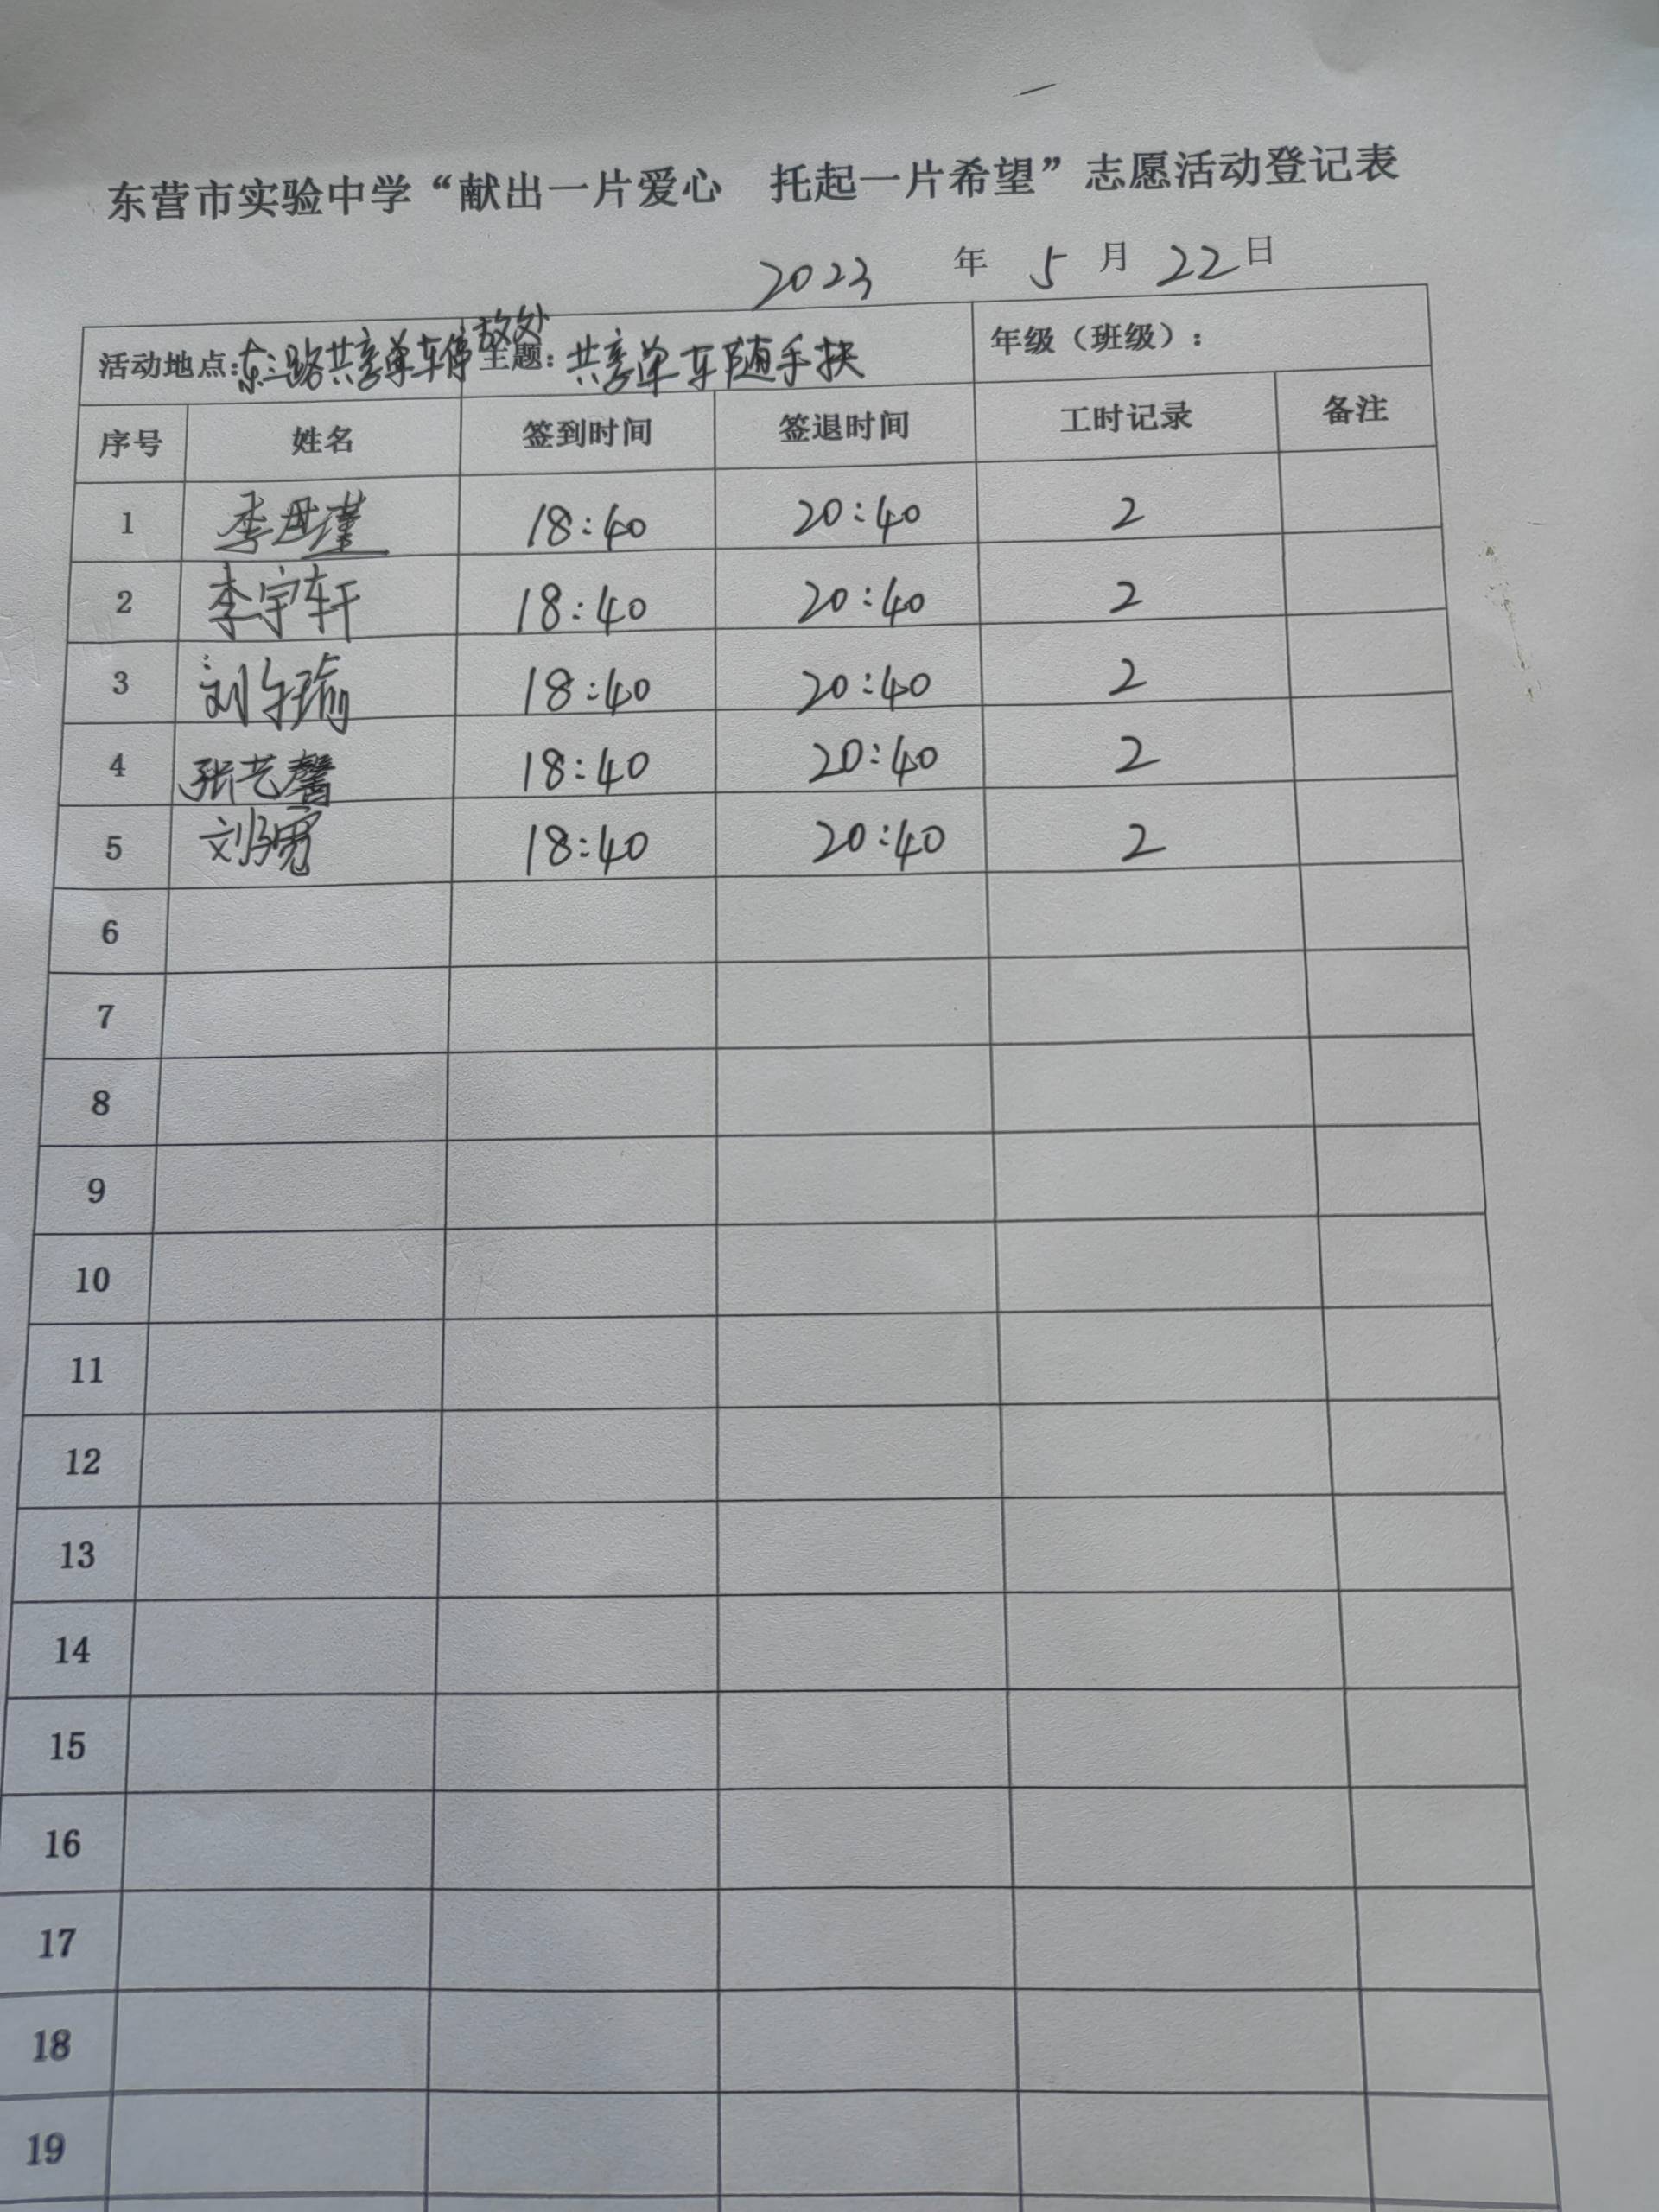 东营市实验中学“献出一片爱心 托起一片希望”志愿活动登记表
2023 年 5 月 22 日
活动地点:东三路共享单车停放处 主题: 共享单车随手扶 年级（班级）:
序号 姓名 签到时间 签退时间 工时记录 备注
1 李 瑾 18:40 20:40 2
2 李宇轩 18:40 20:40 2
3 刘 瑜 18:40 20:40 2
4 张艺馨 18:40 20:40 2
5 刘 18:40 20:40 2
6
7
8
9
10
11
12
13
14
15
16
17
18
19